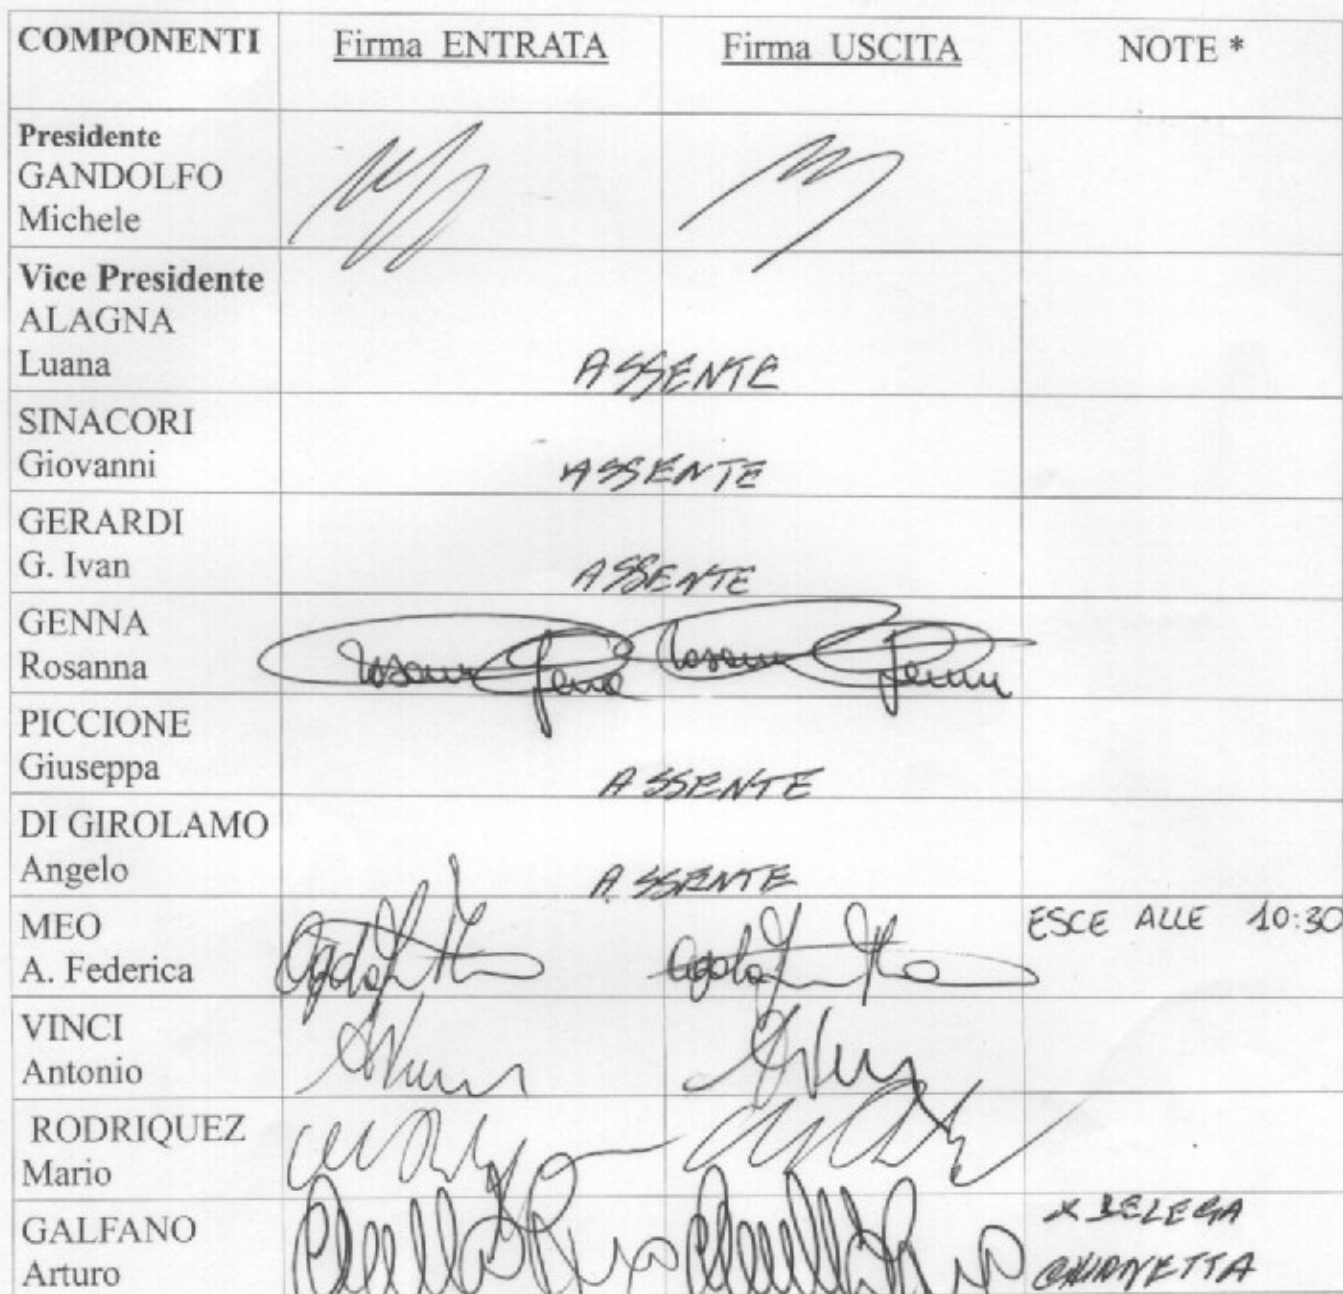 COMPONENTI Firma ENTRATA Firma USCITA NOTE *
Presidente
GANDOLFO
Michele
Vice Presidente
ALAGNA
Luana ASSENTE
SINACORI
Giovanni ASSENTE
GERARDI
G. Ivan ASSENTE
GENNA
Rosanna
PICCIONE
Giuseppa ASSENTE
DI GIROLAMO
Angelo ASSENTE
MEO ESCE ALLE 10:30
A. Federica
VINCI
Antonio
RODRIQUEZ
Mario
GALFANO X DELEGA
Arturo